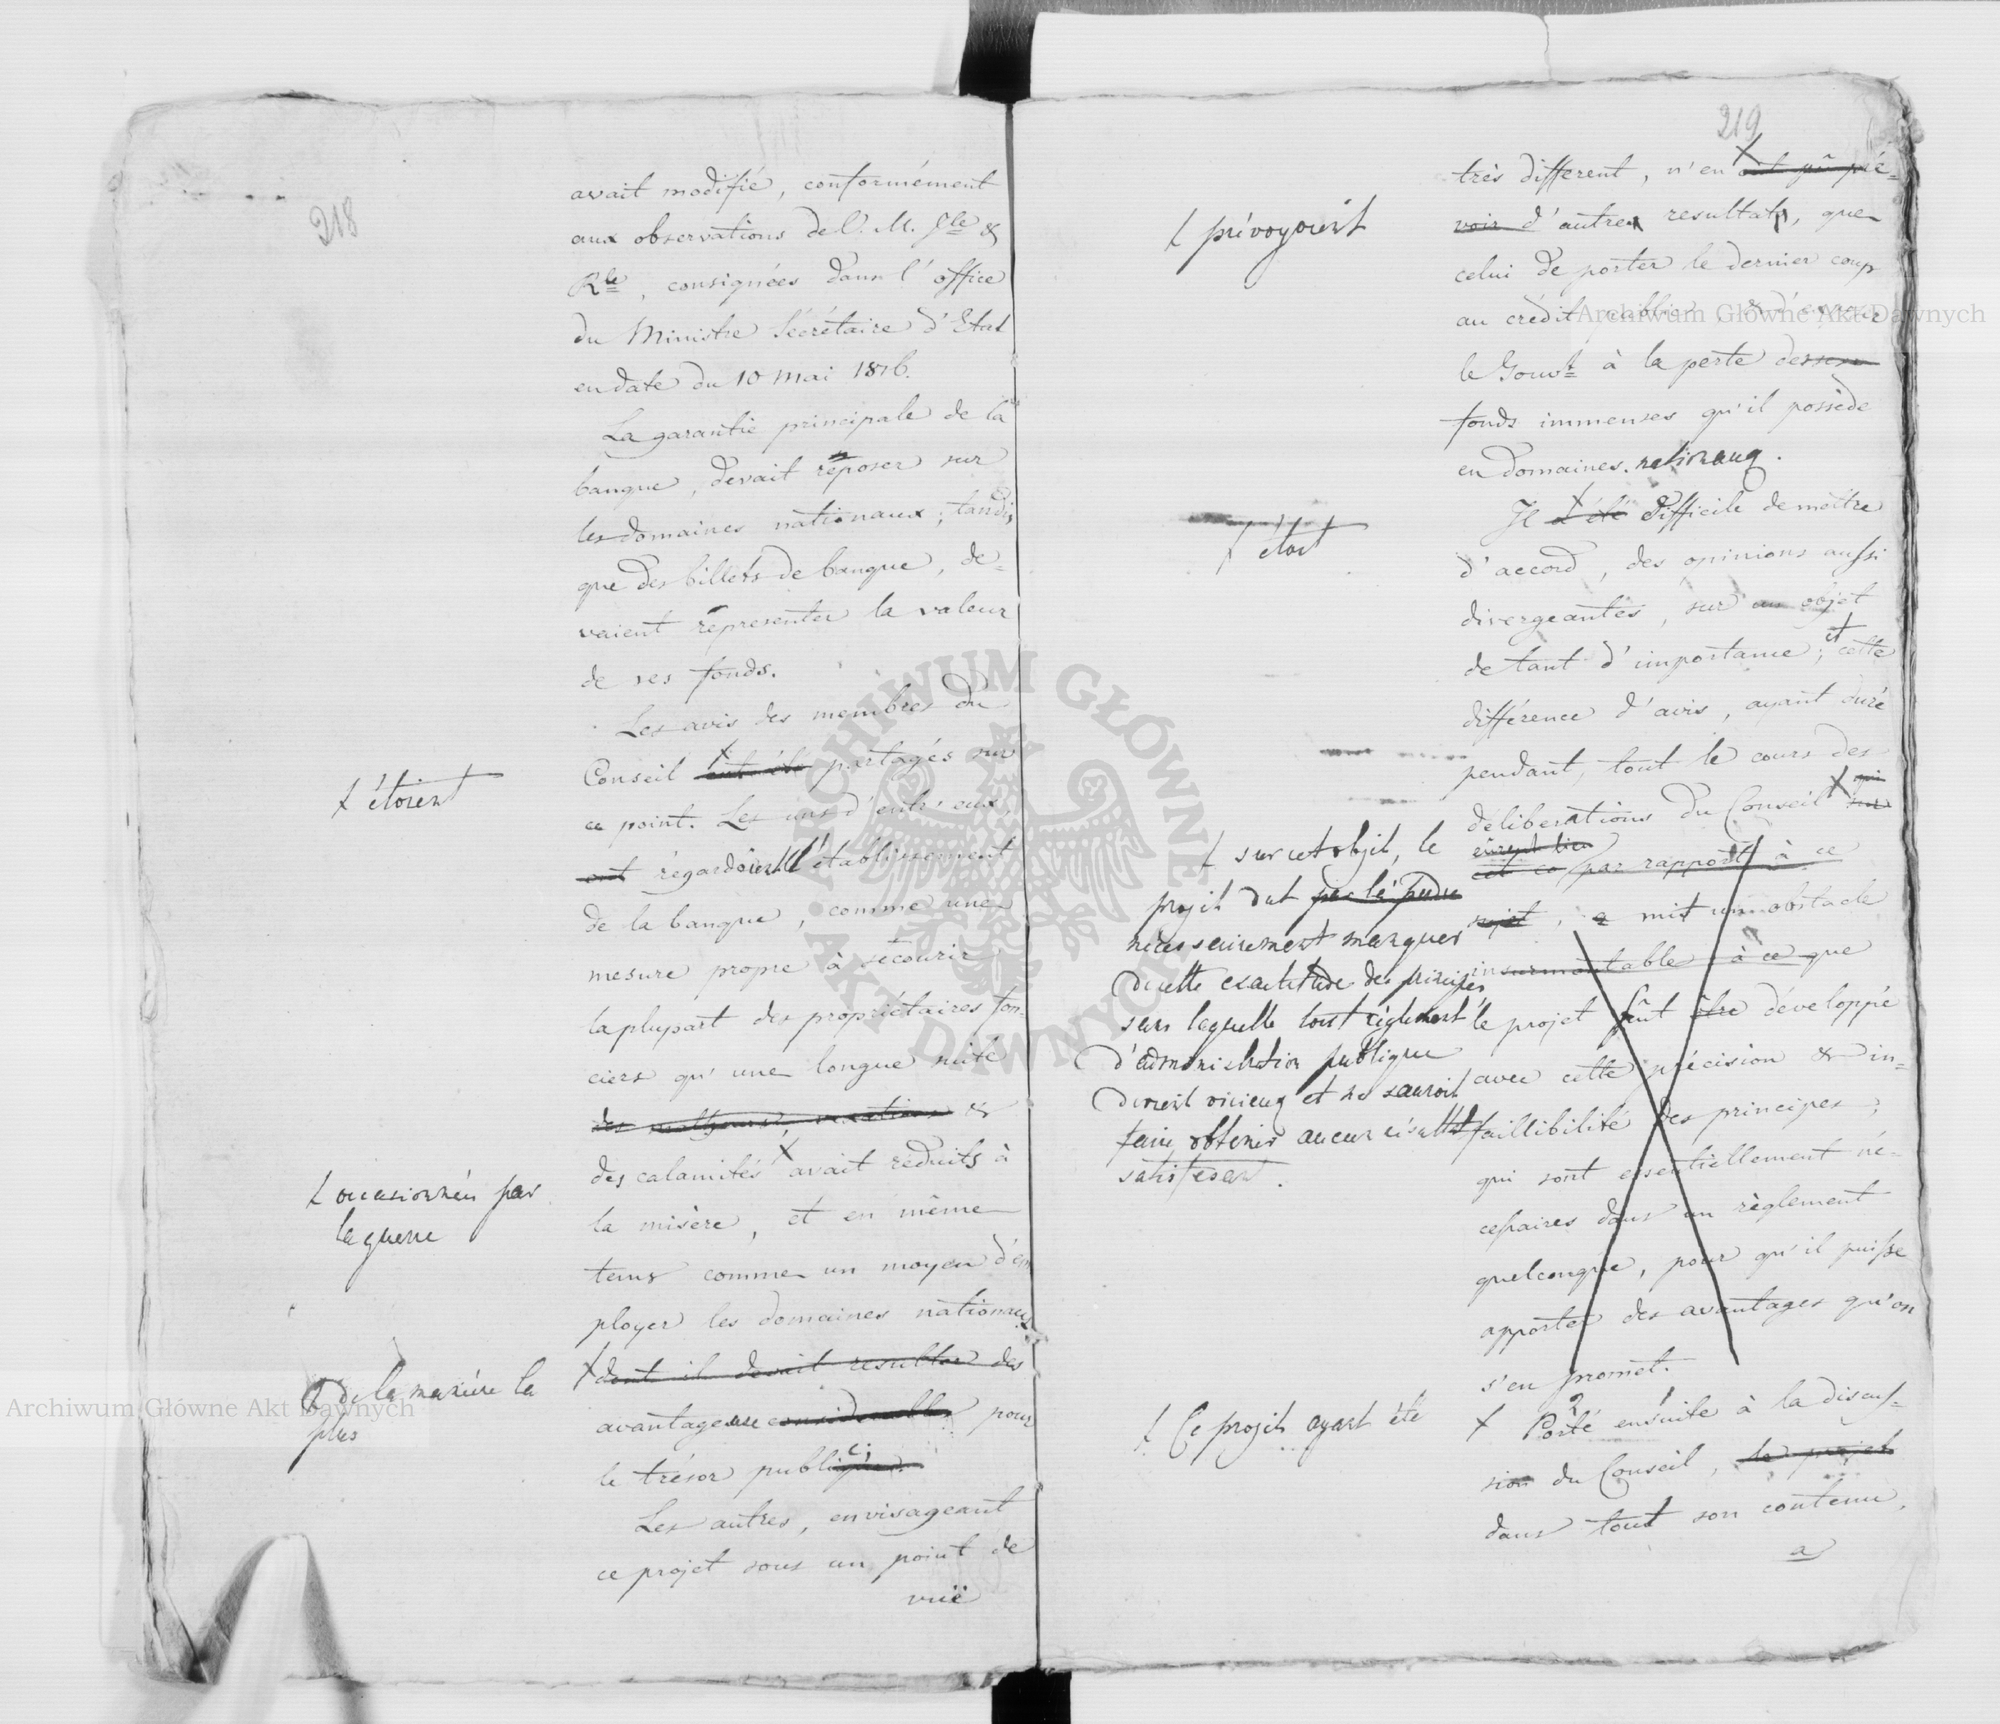 218
avait modifié, conformément
aux observations de V. M. Jle &
Rle, consignées dans l'office
du Ministre Sécrétaire d'Etat
en date du 10 Mai 1816.
La garantie principale de la
banque, devait réposer sur
les domaines nationaux; tandis
que des billets de banque, de=
vaient représenter la valeur
de ses fonds.
Les avis des membres du
Conseil ont été partagés sur
ce point. Les uns d'entr'eux,
ont régardoient l'établissement
de la banque, comme une
mesure propre à sécourir
la plupart des propriétaires fon-
ciers qu'une longue suite
des malheurs, vexations &
des calamités avait réduits à
la misère, et en même
tems comme un moyen d'em
ployer les domaines nationaux
dont il devait resulter des
avantageuse considerables pour
le trésor public.
Les autres, envisageant
ce projet sous un point de
vuë
+ étoient
+ occasionnées par
la guerre
+ de la manière la
plus
219
très different, n'en ont pû pré=
voir d'autre resultat, que
celui de porter le dernier coup
au crédit public, & d'exposer
le Gouvt à la perte des
fonds immenses qu'il possède
en domaines nationaux.
Il a été difficile de mettre
d'accord, des opinions aussi
divergeantes, sur un objet
de tant d'importance; et cette
différence d'avis, ayant duré
pendant, tout le cours des
déliberations du Conseil qui
eurent lieu
par rapport à ce
sujet, a mit un obstacle
insurmontable à ce que
le projet fut être développé
avec cette précision & in-
faillibilité des principes;
qui sont essentiellement né=
cessaires dans un règlement
quelconque, pour qu'il puisse
apporter des avantages qu'on
s'en promet.
+ Porté ensuite à la discus-
sion du Conseil, le projet
dans tout son contenu,
a
+ prévoyoient
+ étoit
+ sur cet objet, le
projet dut
nécessairement manquer
de cette exactitude des principes
sans laquelle tout règlement
d'administration publique
devient vicieux et ne sauroit
faire obtenir aucun résultat
satisfesant.
+ Ce projet ayant été
Archiwum Główne Akt Dawnych
Archiwum Główne Akt Dawnych
ARCHIWUM GŁÓWNE
AKT DAWNYCH